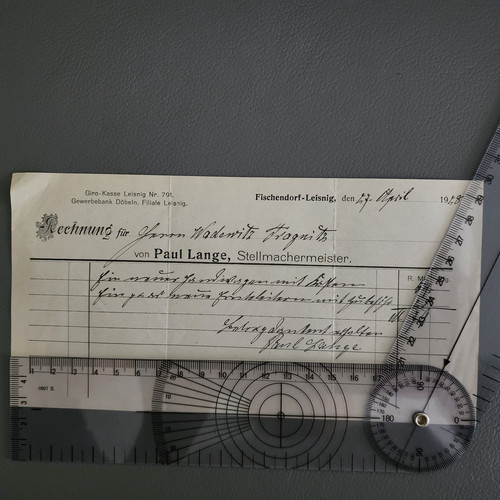 Giro-Kasse Leisnig Nr. 791.
Gewerbebank Döbeln, Filiale Leisnig.
Fischendorf-Leisnig, den 27. April 192
Rechnung für Herrn Wadewitz Tragnitz
von Paul Lange, Stellmachermeister.
R. M.
Ein neuer Handwagen mit Kasten
Ein paar neue Ernteleitern mit Zubehör
Betrag dankend erhalten
Paul Lange